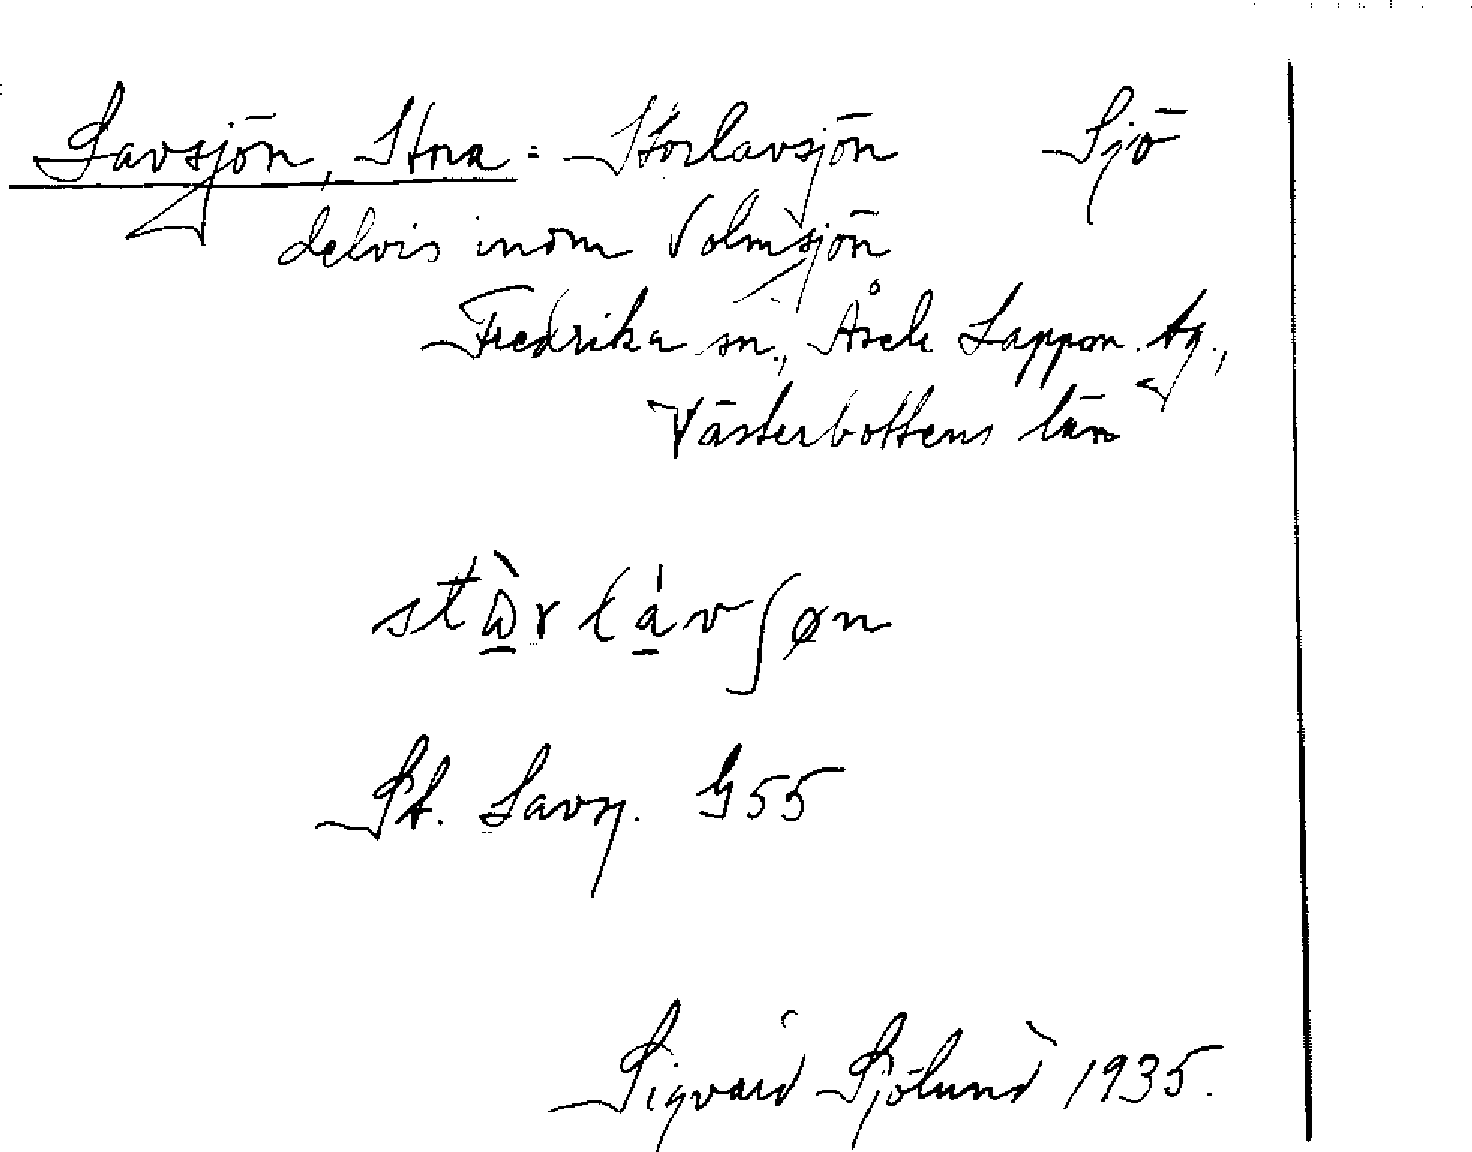 Lavsjön, Stora = Storlavsjön Sjö
delvis inom Volmsjön
Fredrika sn., Åsele Lappm. tg.,
Västerbottens län
stὼ̲r lá̲vʃøn
St. Lavsj. G55
Sigvard Sjölund 1935.